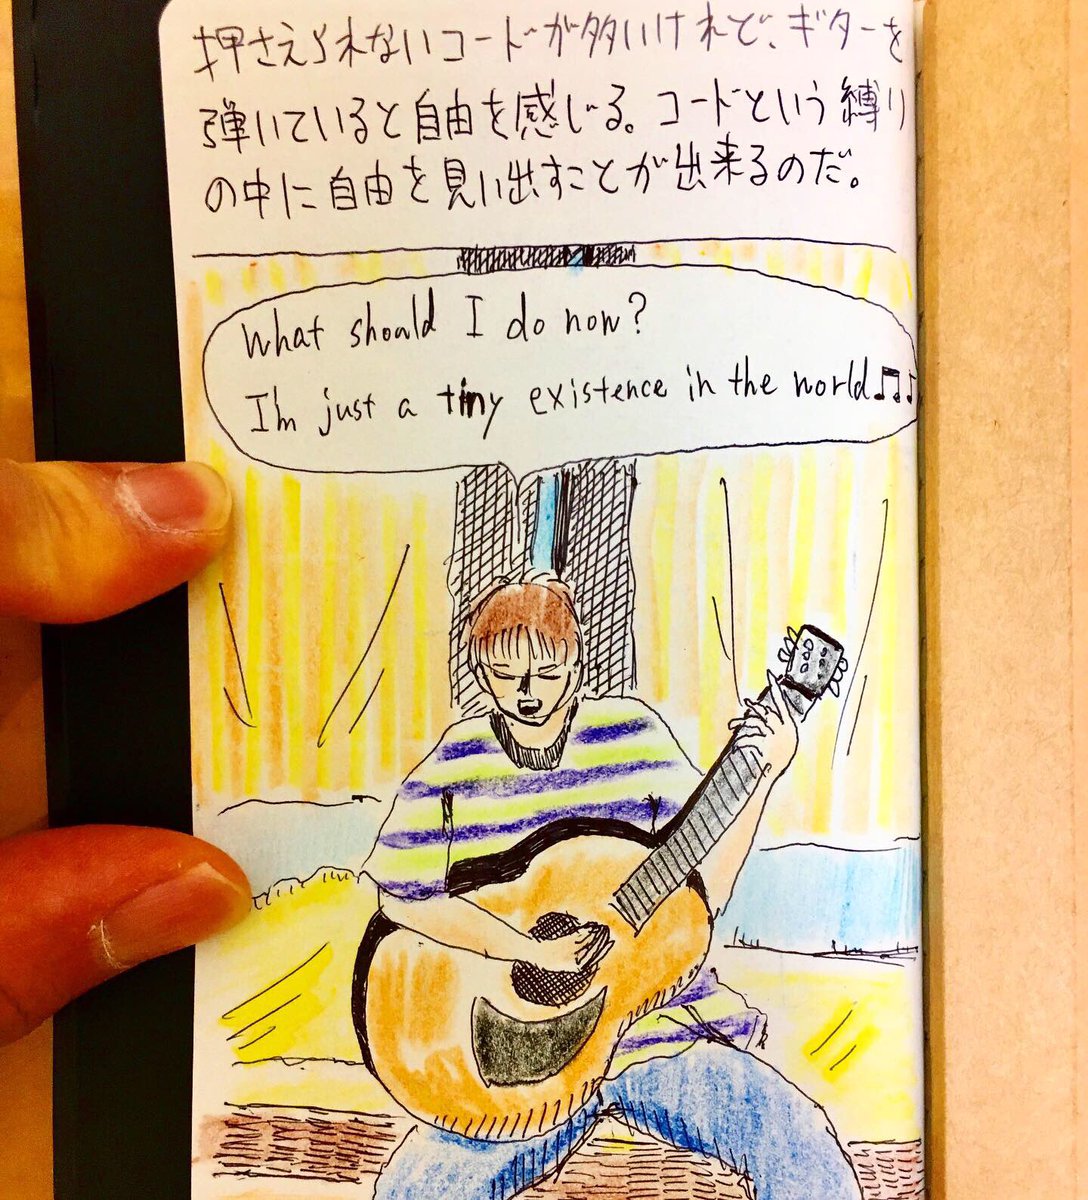 押さえられないコードが多いけれど、ギターを
弾いていると自由を感じる。コードという縛り
の中に自由を見い出すことが出来るのだ。
What should I do now?
I'm just a tiny existence in the world♫♪